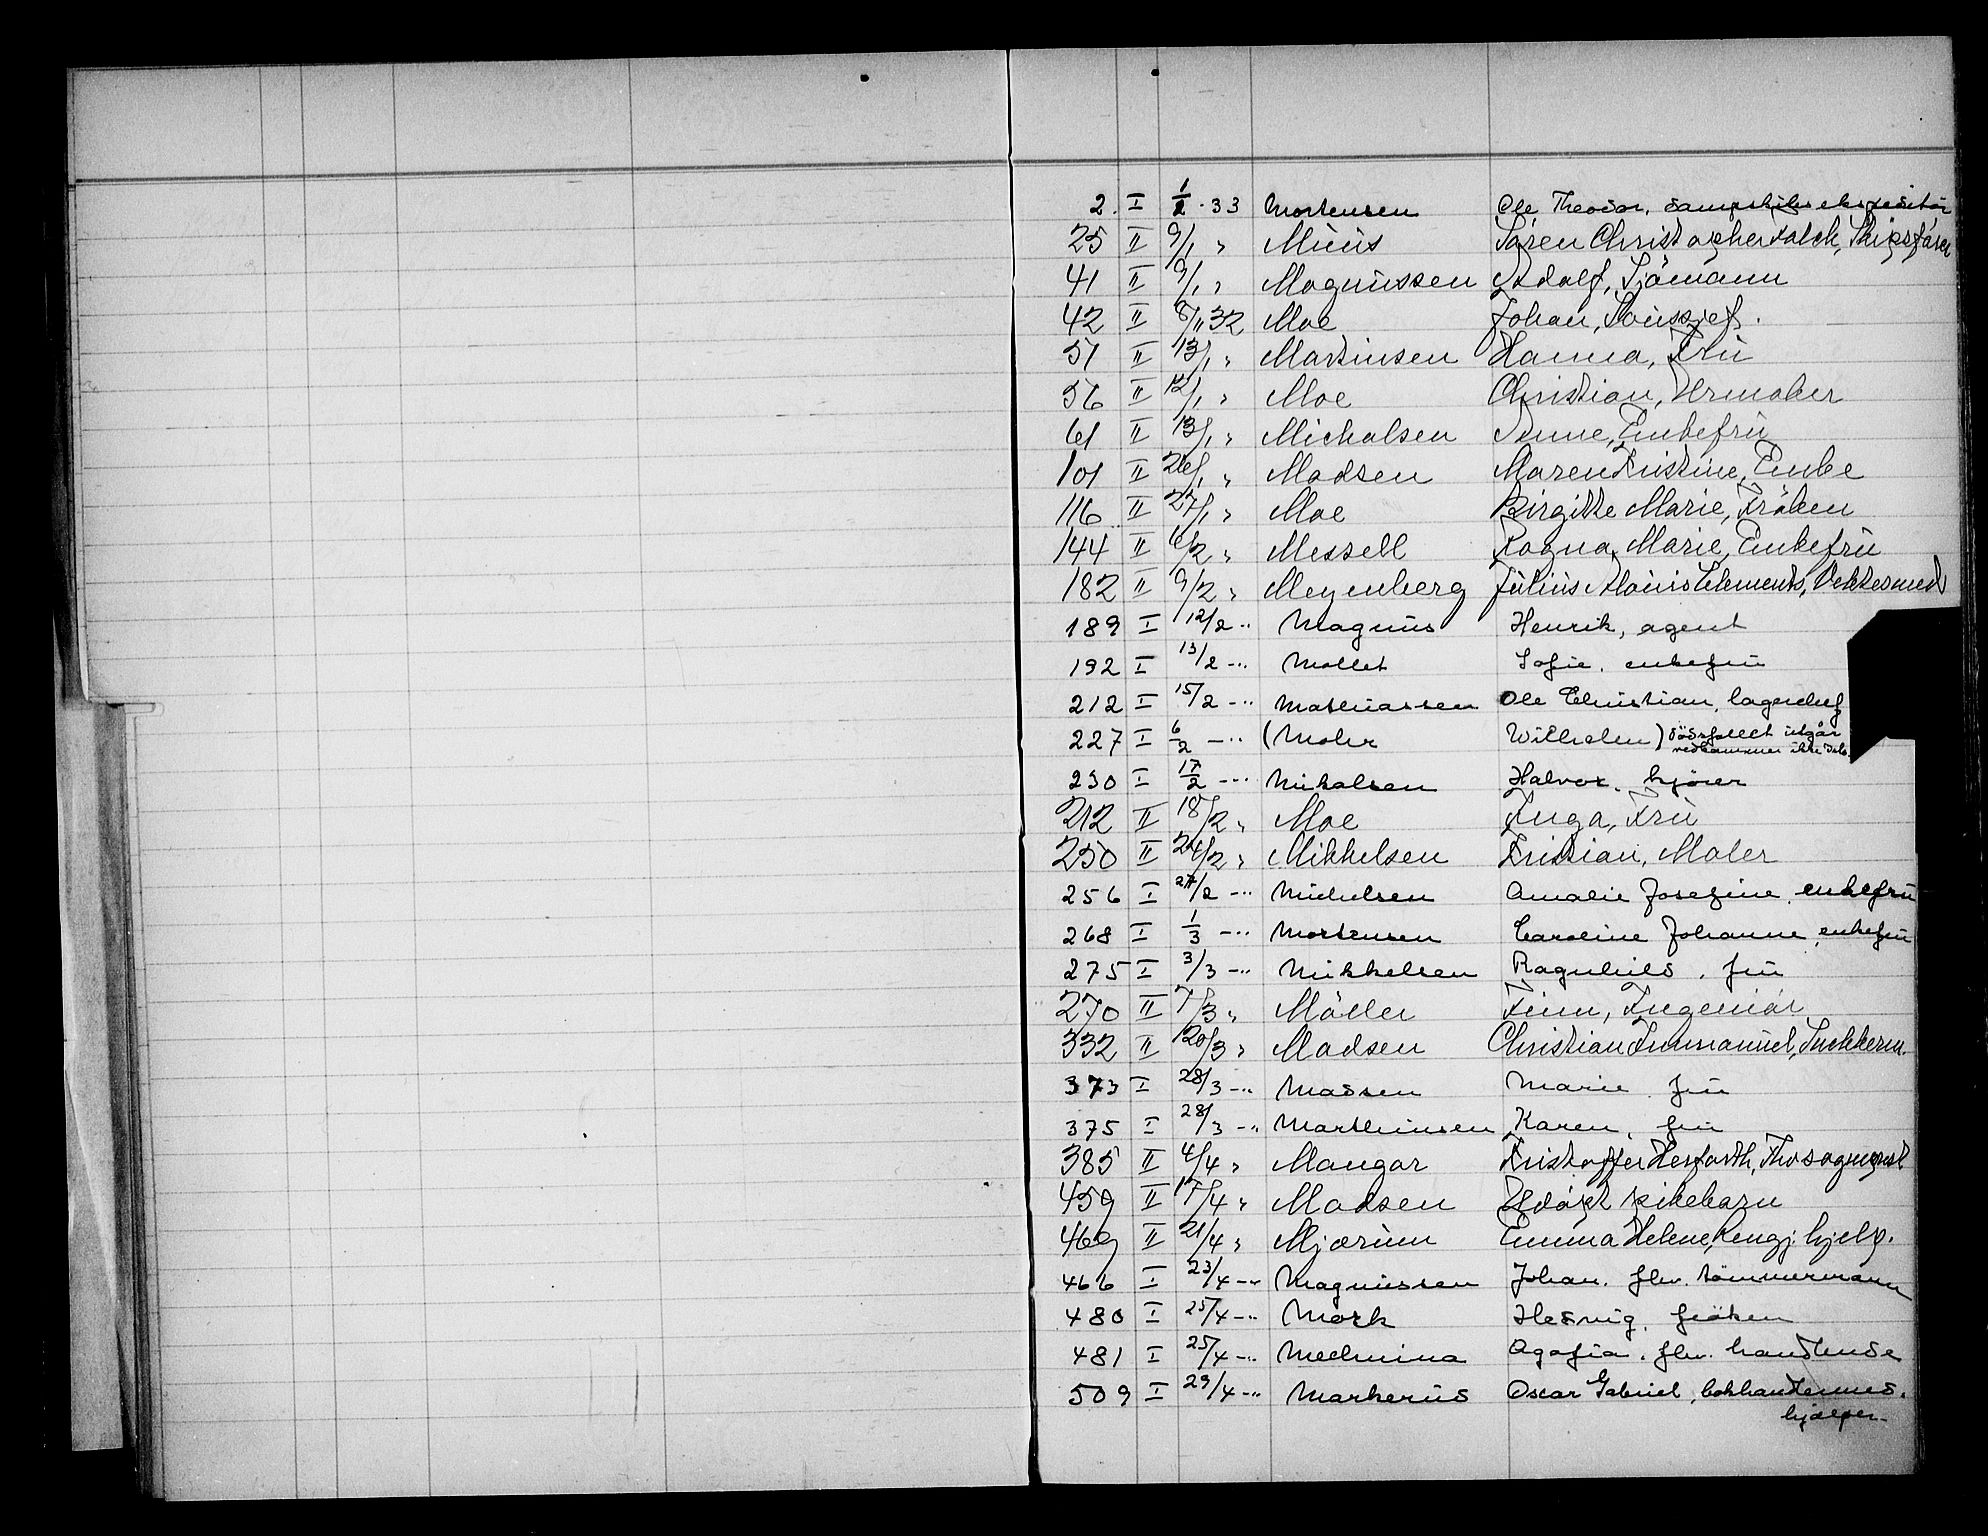 2. I 1/2 · 33 Mortensen Ole Theodor, dampskibsekspeditör
25 II 9/1 " Müüs Sören Christopher Falck, Skipsförer
41 II 9/1 " Magnüssen Adolf, Sjömann
42 II 8/11 32 Moe Johan,
51 II 13/1 " Martinsen Hanna, Frü
56 II 12/1 " Moe Christian, Urmaker
61 II 13/1 " Michalsen Enkefrü
101 II 26/1 " Madsen Maren Kristine, Enke
116 II 27/1 " Moe Birgitte Marie, Fröken
144 II 6/2 " Messell Ragna Marie, Enkefrü
182 II 9/2 " Meyenberg Jülius Clements,
189 I 12/2 -" Magnüs Henrik, agent
192 I 13/2 -" Mollet Sofie, enkefrü
212 I 15/2 -" Mathiassen Ole Christian, lagerchef
227 I 6/2 -" (Mohr Wilhelm) dödsfallet ütgår
vedkommer ikke Oslo.
230 I 17/2 -" Mikalsen Halvor, kjörer
212 II 18/2 " Moe Inga, Frü
250 II 24/2 " Mikkelsen Kristian, Maler
256 I 27/2 -" Michelsen Amalie Josefine, enkefrü
268 I 1/3 -" Mortensen Caroline Johanne, enkefrü
275 I 3/3 -" Mikkelsen Ragnhild, frü
270 II 7/3 " Möller Finn, Ingeniör
332 II 20/3 " Madsen Christian Immanüel, Snekkerm.
373 I 28/3 -" Madsen Marie frü
375 I 28/3 -" Marthinsen Karen, frü
385 II 4/4 " Mangor Kristoffer Herfarth,
459 II 17/4 " Madsen Udöpt pikebarn
469 II 21/4 " Mjærüm Emma Helene, Rengj. hjelp.
466 I 23/4 -" Magnüssen Johan, fhv. tömmermann
480 I 25/4 -" Mørk Hedvig, fröken
481 I 25/4 -" Mechnina Agafia, fhv. handlende
509 I 29/4 -" Markerüs Oscar Gabriel, bokhandlermed.
hjælper.